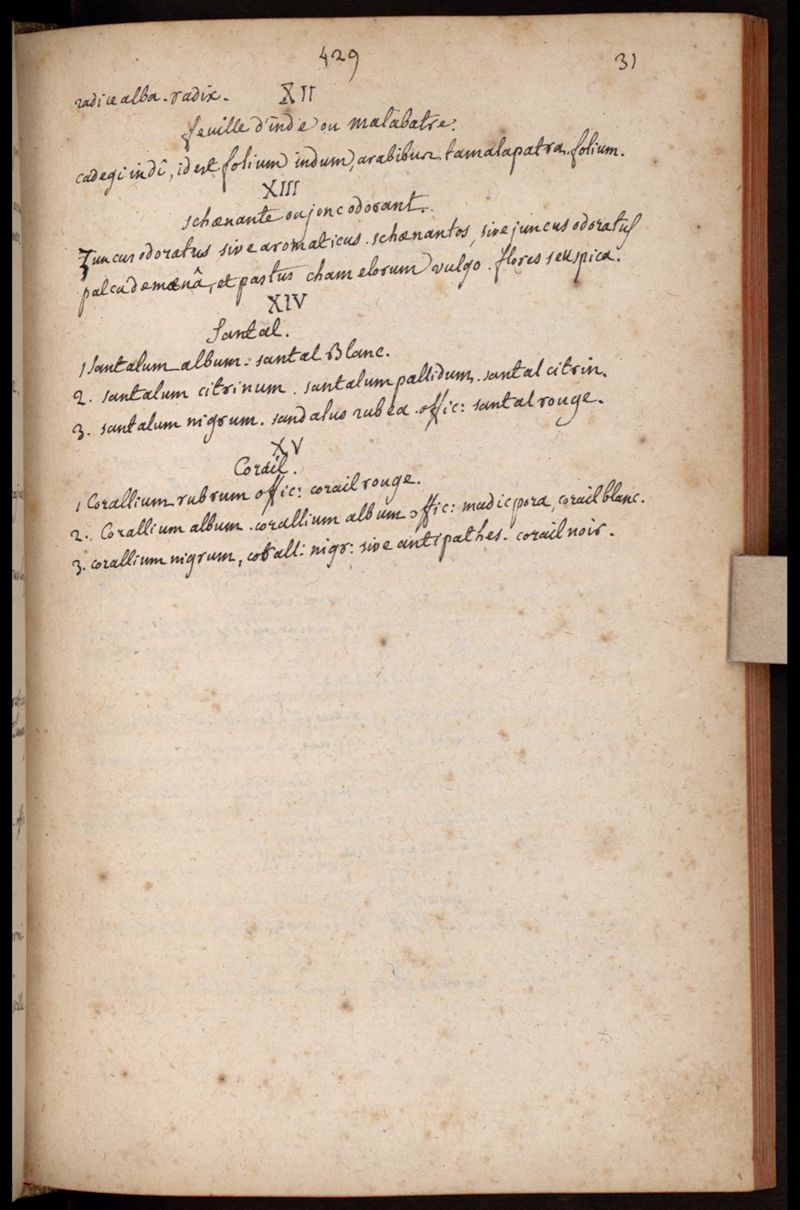 429
31
radice alba. radix.
XII
feuille d'inde ou malabatre.
cadegi indi, id est folium indum, arabibus tamalapatra. folium.
XIII
schœnante ou jonc odorant.
Juncus odoratus sive aromaticus. schœnantos, sive juncus odoratus
palea de mœnâ, et pastus chamelorum vulgo. flores seu spica.
XIV
Santal.
1 Santalum album. santal Blanc.
2. santalum citrinum. santalum pallidum. santal citrin.
3. santalum nigrum. sandalus rubea offic: santal rouge.
XV
Corail.
1 Corallium rubrum offic: corail rouge.
2. Corallium album. corallium album offic: madiepora, corail blanc.
3. corallium nigrum, corall: nigr: sive antipathes. corail noir.